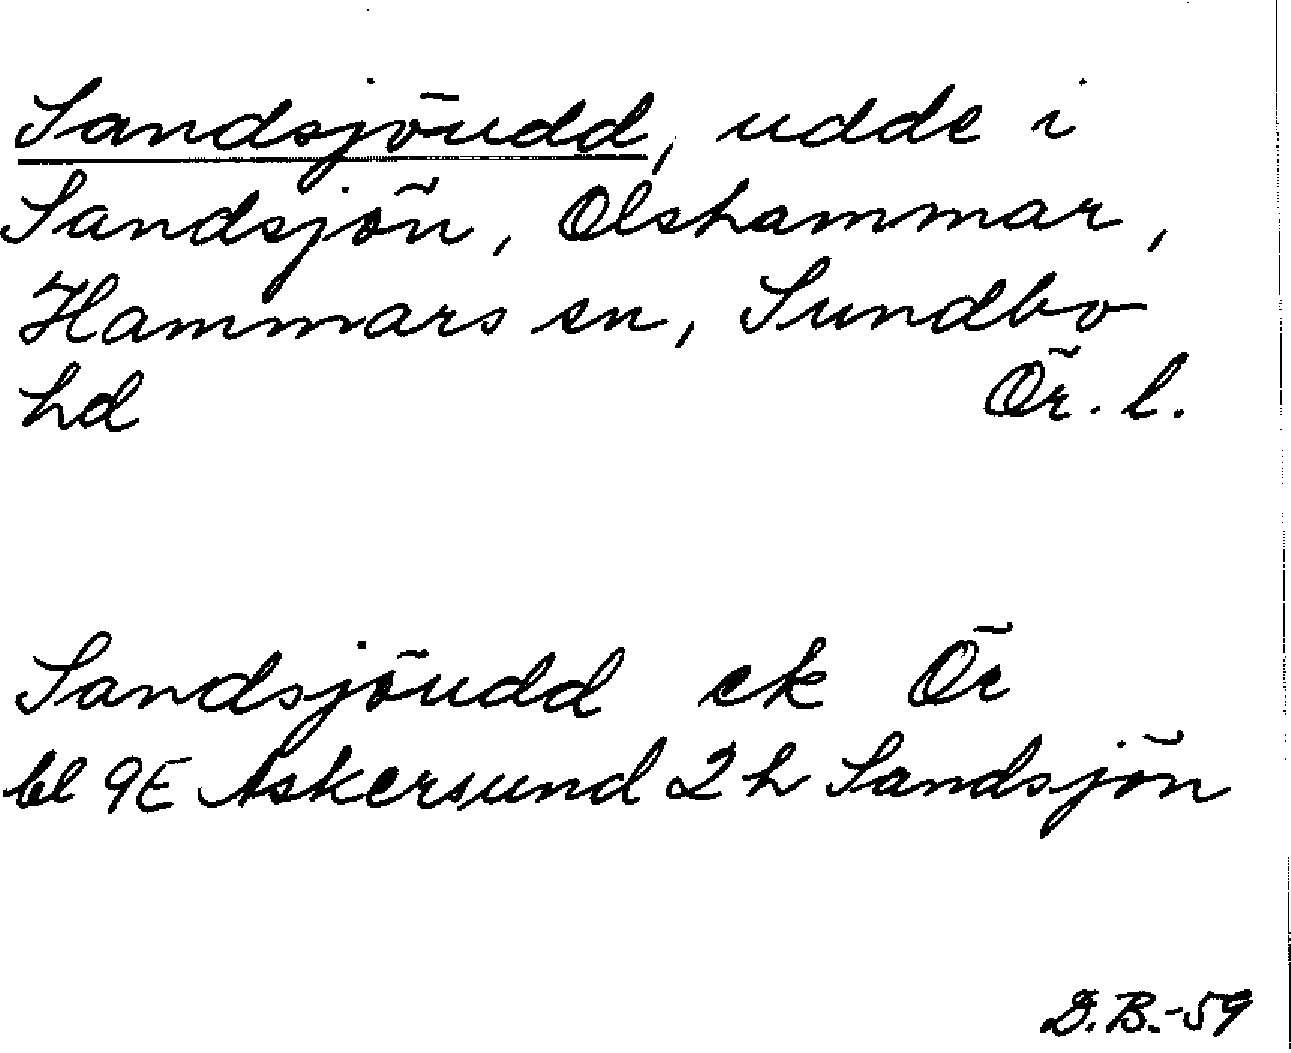 Sandsjöudd, udde i
Sandsjön, Olshammar,
Hammars sn, Sundbo
hd Ör. l.
Sandsjöudd ek Ör
bl 9E Askersund 2h Sandsjön
D.B.-59